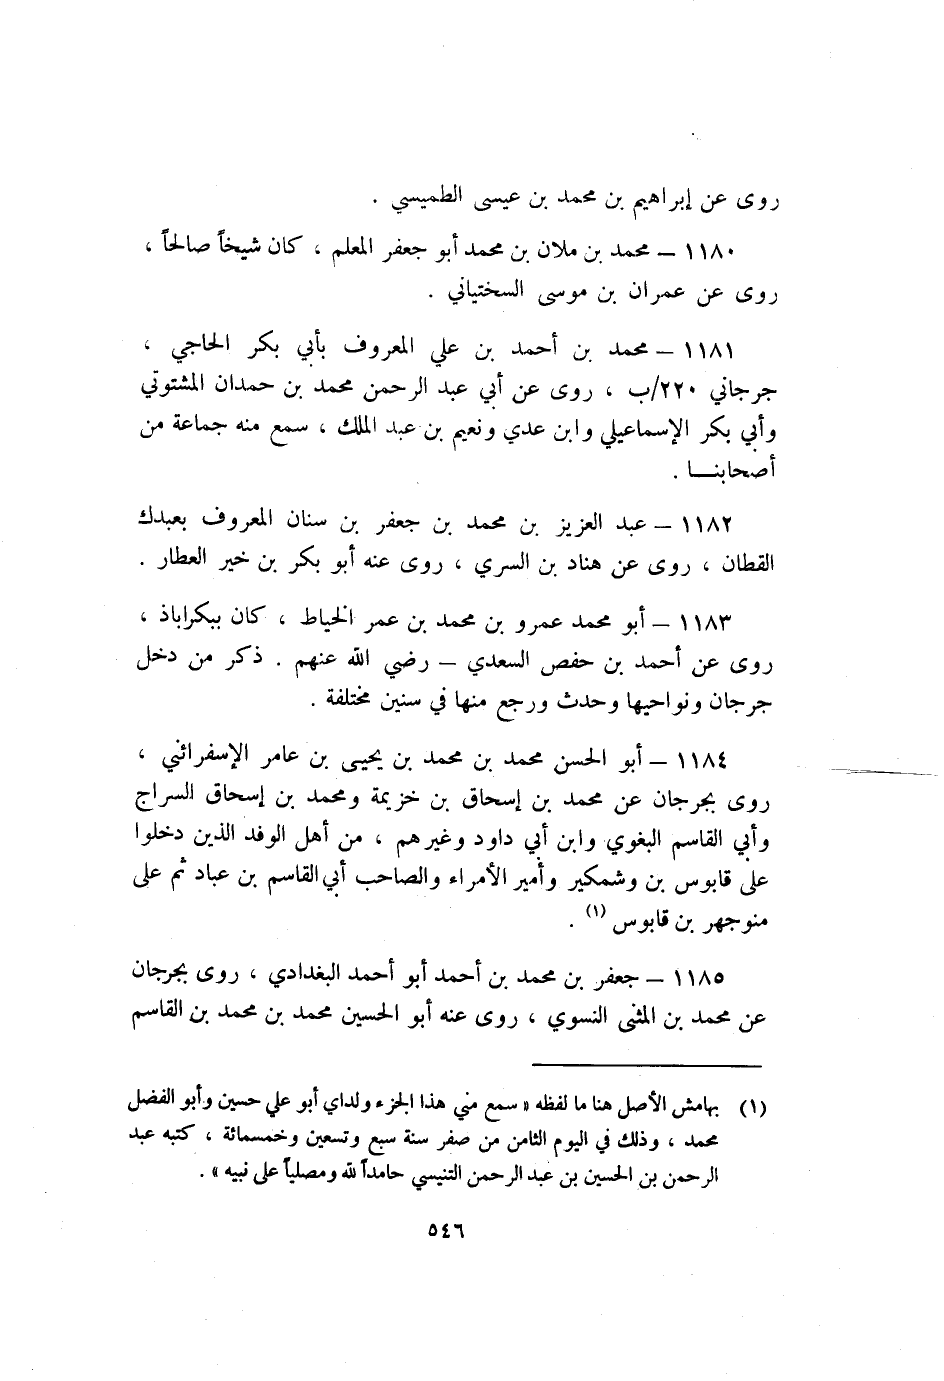 روى عن إبراهيم بن محمد بن عيسى الطميسي .
١١٨٠ – محمد بن ملان بن محمد أبو جعفر المعلم ، كان شيخاً صالحاً ،
روى عن عمران بن موسى السختياني .
١١٨١ – محمد بن أحمد بن علي المعروف بأبي بكر الحاجي ،
جرجاني ٢٢٠/ب ، روى عن أبي عبد الرحمن محمد بن حمدان المشتوتي
وأبي بكر الإسماعيلي وابن عدي ونعيم بن عبد الملك ، سمع منه جماعة من
أصحابنـــا .
١١٨٢ – عبد العزيز بن محمد بن جعفر بن سنان المعروف بعبدك
القطان ، روى عن هناد بن السري ، روى عنه أبو بكر بن خير العطار .
١١٨٣ – أبو محمد عمرو بن محمد بن عمر الخياط ، كان ببكراباذ ،
روى عن أحمد بن حفص السعدي – رضي الله عنهم . ذكر من دخل
جرجان ونواحيها وحدث ورجع منها في سنين مختلفة .
١١٨٤ – أبو الحسن محمد بن محمد بن يحيى بن عامر الإسفرائني ،
روى بجرجان عن محمد بن إسحاق بن خزيمة ومحمد بن إسحاق السراج
وأبي القاسم البغوي وابن أبي داود وغيرهم ، من أهل الوفد الذين دخلوا
على قابوس بن وشمكير وأمير الأمراء والصاحب أبي القاسم بن عباد ثم على
منوجهر بن قابوس (١) .
١١٨٥ – جعفر بن محمد بن أحمد أبو أحمد البغدادي ، روى بجرجان
عن محمد بن المثنى النسوي ، روى عنه أبو الحسين محمد بن محمد بن القاسم
(١) بهامش الأصل هنا ما لفظه « سمع مني هذا الجزء ولداي أبو علي حسين وأبو الفضل
محمد ، وذلك في اليوم الثامن من صفر سنة سبع وتسعين وخمسمائة ، كتبه عبد
الرحمن بن الحسين بن عبد الرحمن التنيسي حامداً لله ومصلياً على نبيه » .
٥٤٦